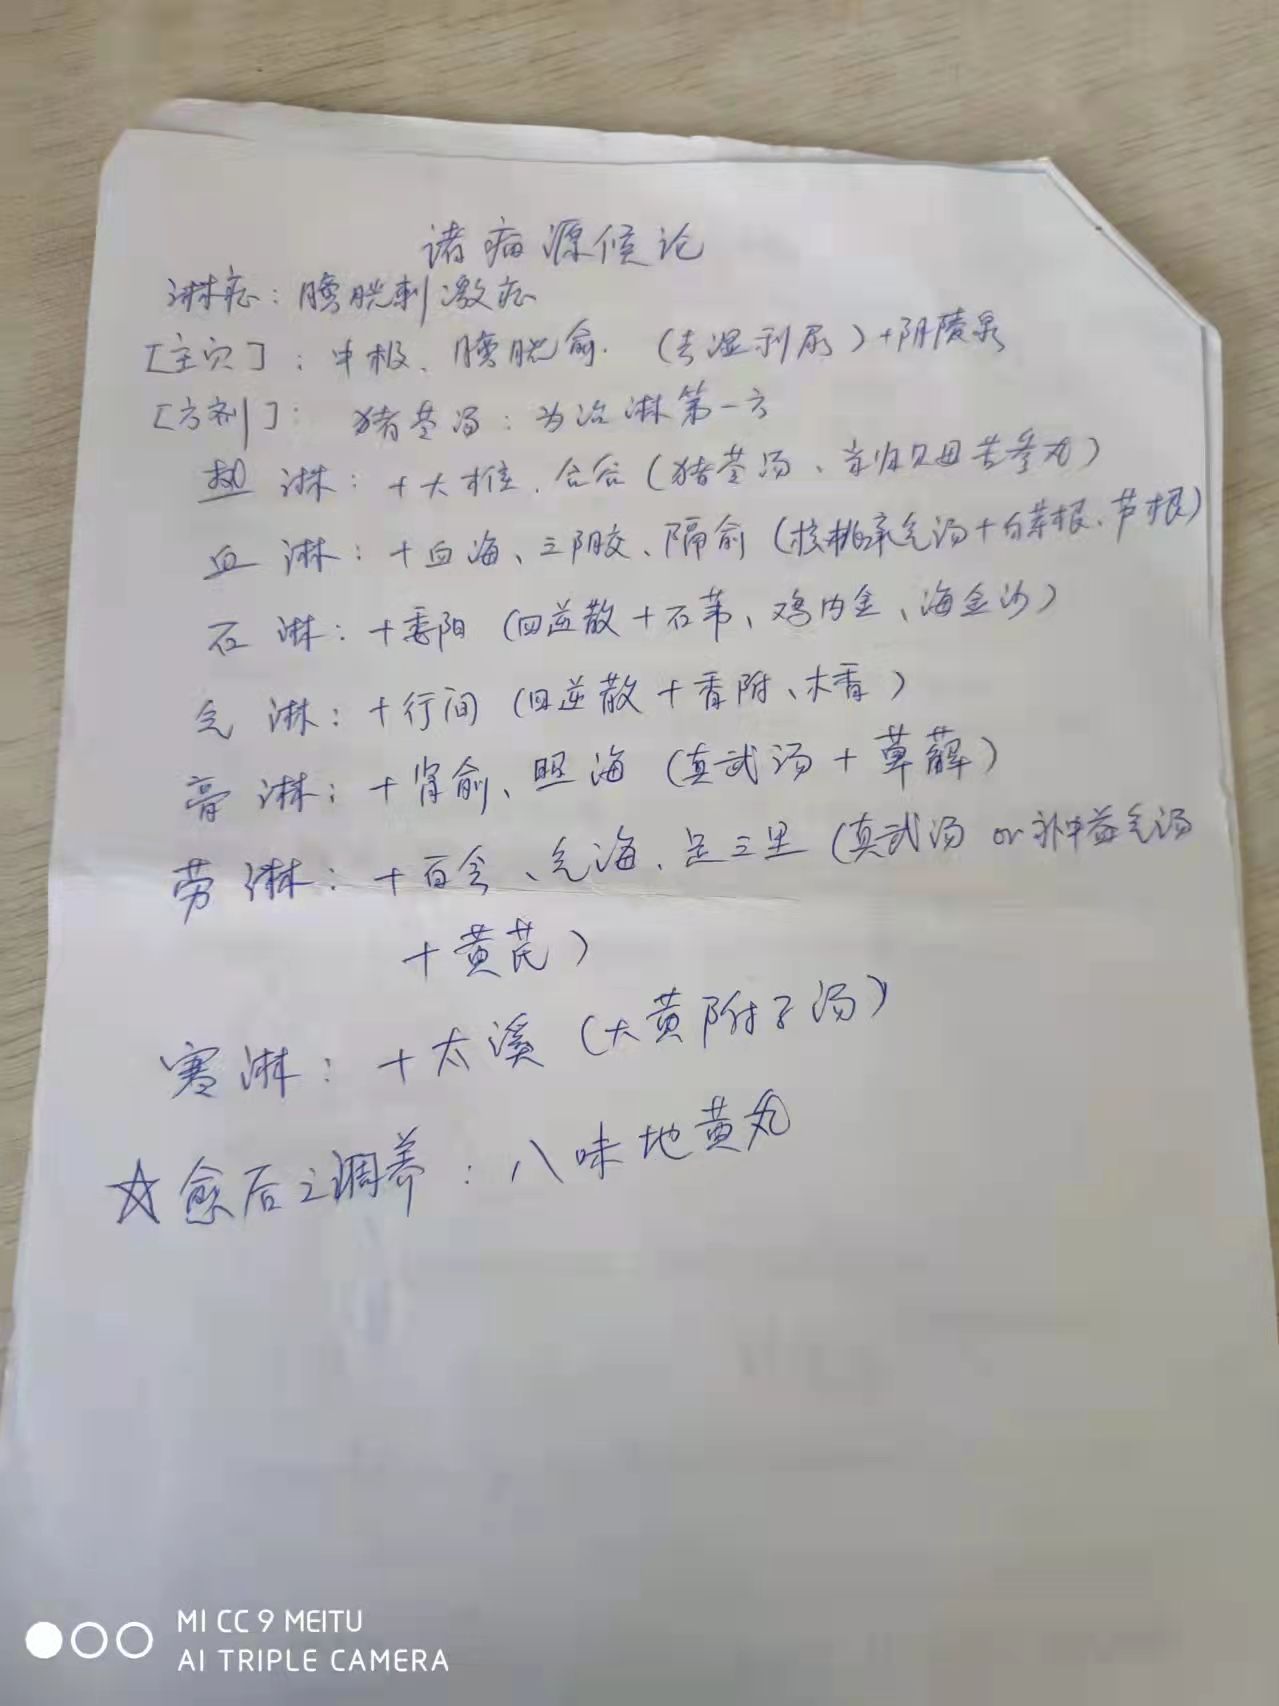 诸病源候论
淋症：膀胱刺激症
[主穴]：中极、膀胱俞.（去湿利尿）+阴陵泉
[方剂]：猪苓汤：为治淋第一方
热淋：+大椎、合谷（猪苓汤、当归贝母苦参丸）
血淋：+血海、三阴交、隔俞（核桃承气汤+白茅根、芦根）
石淋：+委阳（四逆散+石苇、鸡内金、海金沙）
气淋：+行间（四逆散+香附、木香）
膏淋：+肾俞、照海（真武汤+萆薢）
劳淋：+百会、气海、足三里（真武汤 or 补中益气汤
+黄芪）
寒淋：+太溪（大黄附子汤）
☆愈后之调养：八味地黄丸
MI CC 9 MEITU
AI TRIPLE CAMERA